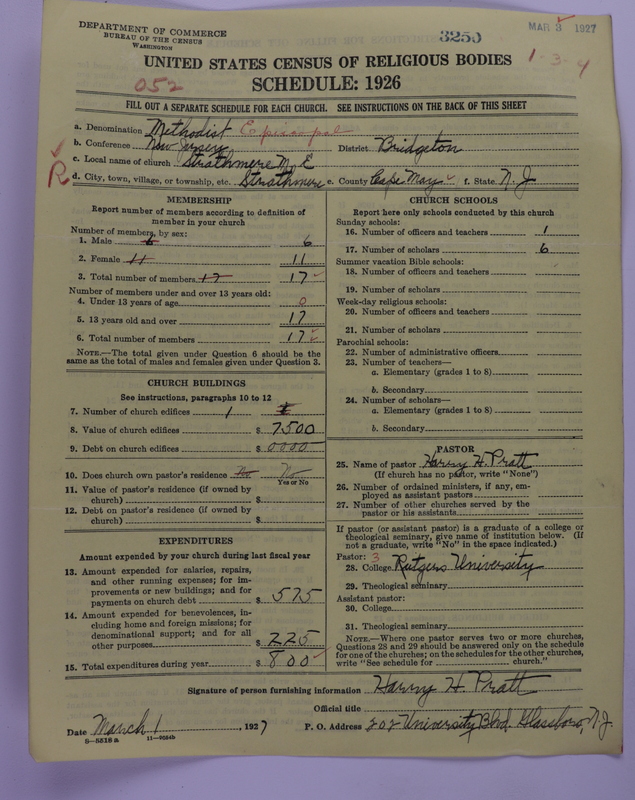 DEPARTMENT OF COMMERCE
BUREAU OF THE CENSUS
WASHINGTON
3250
MAR 3 1927
UNITED STATES CENSUS OF RELIGIOUS BODIES
1-3-4
052
SCHEDULE: 1926
FILL OUT A SEPARATE SCHEDULE FOR EACH CHURCH. SEE INSTRUCTIONS ON THE BACK OF THIS SHEET
a. Denomination Methodist Episcopal
b. Conference New Jersey District Bridgeton
c. Local name of church Strathmere M. E
R d. City, town, village, or township, etc. Strathmere e. County Cape May f. State N. J
MEMBERSHIP
Report number of members according to definition of
member in your church
Number of members, by sex:
1. Male 6 6
2. Female 11 11
3. Total number of members 17 17
Number of members under and over 13 years old:
4. Under 13 years of age 0
5. 13 years old and over 17
6. Total number of members 17
NOTE.—The total given under Question 6 should be the
same as the total of males and females given under Question 3.
CHURCH BUILDINGS
See instructions, paragraphs 10 to 12
7. Number of church edifices 1 1
8. Value of church edifices $ 7500
9. Debt on church edifices $ 0000
10. Does church own pastor's residence No No
Yes or No
11. Value of pastor's residence (if owned by
church) $
12. Debt on pastor's residence (if owned by
church) $
EXPENDITURES
Amount expended by your church during last fiscal year
13. Amount expended for salaries, repairs,
and other running expenses; for im-
provements or new buildings; and for
payments on church debt $ 575
14. Amount expended for benevolences, in-
cluding home and foreign missions; for
denominational support; and for all
other purposes $ 225
15. Total expenditures during year $ 800
CHURCH SCHOOLS
Report here only schools conducted by this church
Sunday schools:
16. Number of officers and teachers 1
17. Number of scholars 6
Summer vacation Bible schools:
18. Number of officers and teachers
19. Number of scholars
Week-day religious schools:
20. Number of officers and teachers
21. Number of scholars
Parochial schools:
22. Number of administrative officers
23. Number of teachers—
a. Elementary (grades 1 to 8)
b. Secondary
24. Number of scholars—
a. Elementary (grades 1 to 8)
b. Secondary
PASTOR
25. Name of pastor Harry H. Pratt
(If church has no pastor, write "None")
26. Number of ordained ministers, if any, em-
ployed as assistant pastors
27. Number of other churches served by the
pastor or his assistants
If pastor (or assistant pastor) is a graduate of a college or
theological seminary, give name of institution below. (If
not a graduate, write "No" in the space indicated.)
Pastor: 3
28. College Rutgers University
29. Theological seminary
Assistant pastor:
30. College
31. Theological seminary
NOTE.—Where one pastor serves two or more churches,
Questions 28 and 29 should be answered only on the schedule
for one of the churches; on the schedules for the other churches,
write "See schedule for church."
Signature of person furnishing information Harry H. Pratt
Official title
Date March 1, 1927 P. O. Address 202 University Blvd. Glassboro, N. J.
8-5518 a 11-9054b